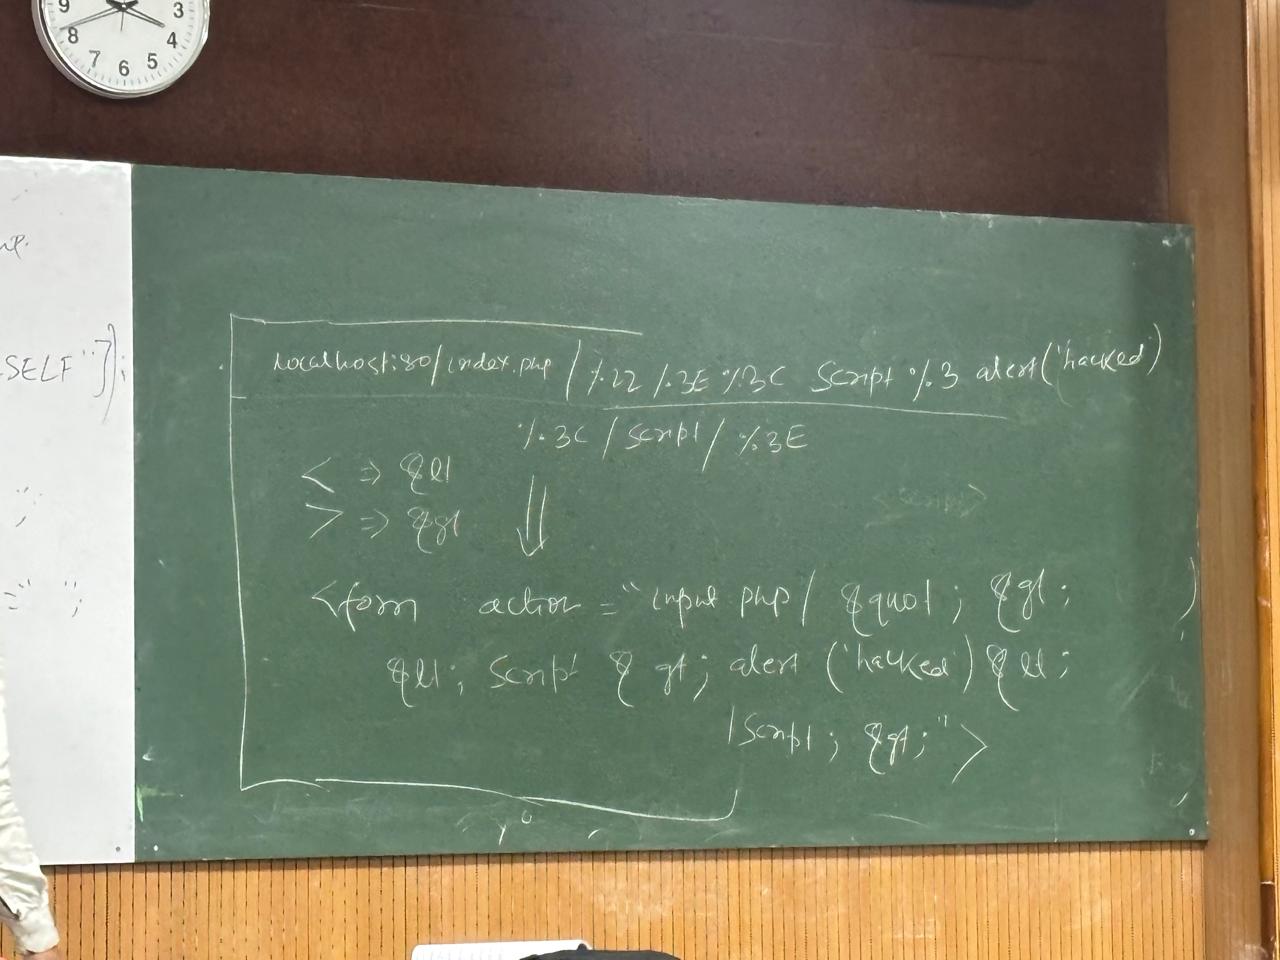 9 3
8 4
7 6 5
SELF"]);
";
=" ";
localhost:80/index.php/%22%3E%3C Script %3 alert('hacked)
%3C/Script/%3E
< => &lt
> => &gt
<script>
<form action="input php/&quot; &gt;
&lt; Script &gt; alert('hacked)&lt;
/Script; &gt;">